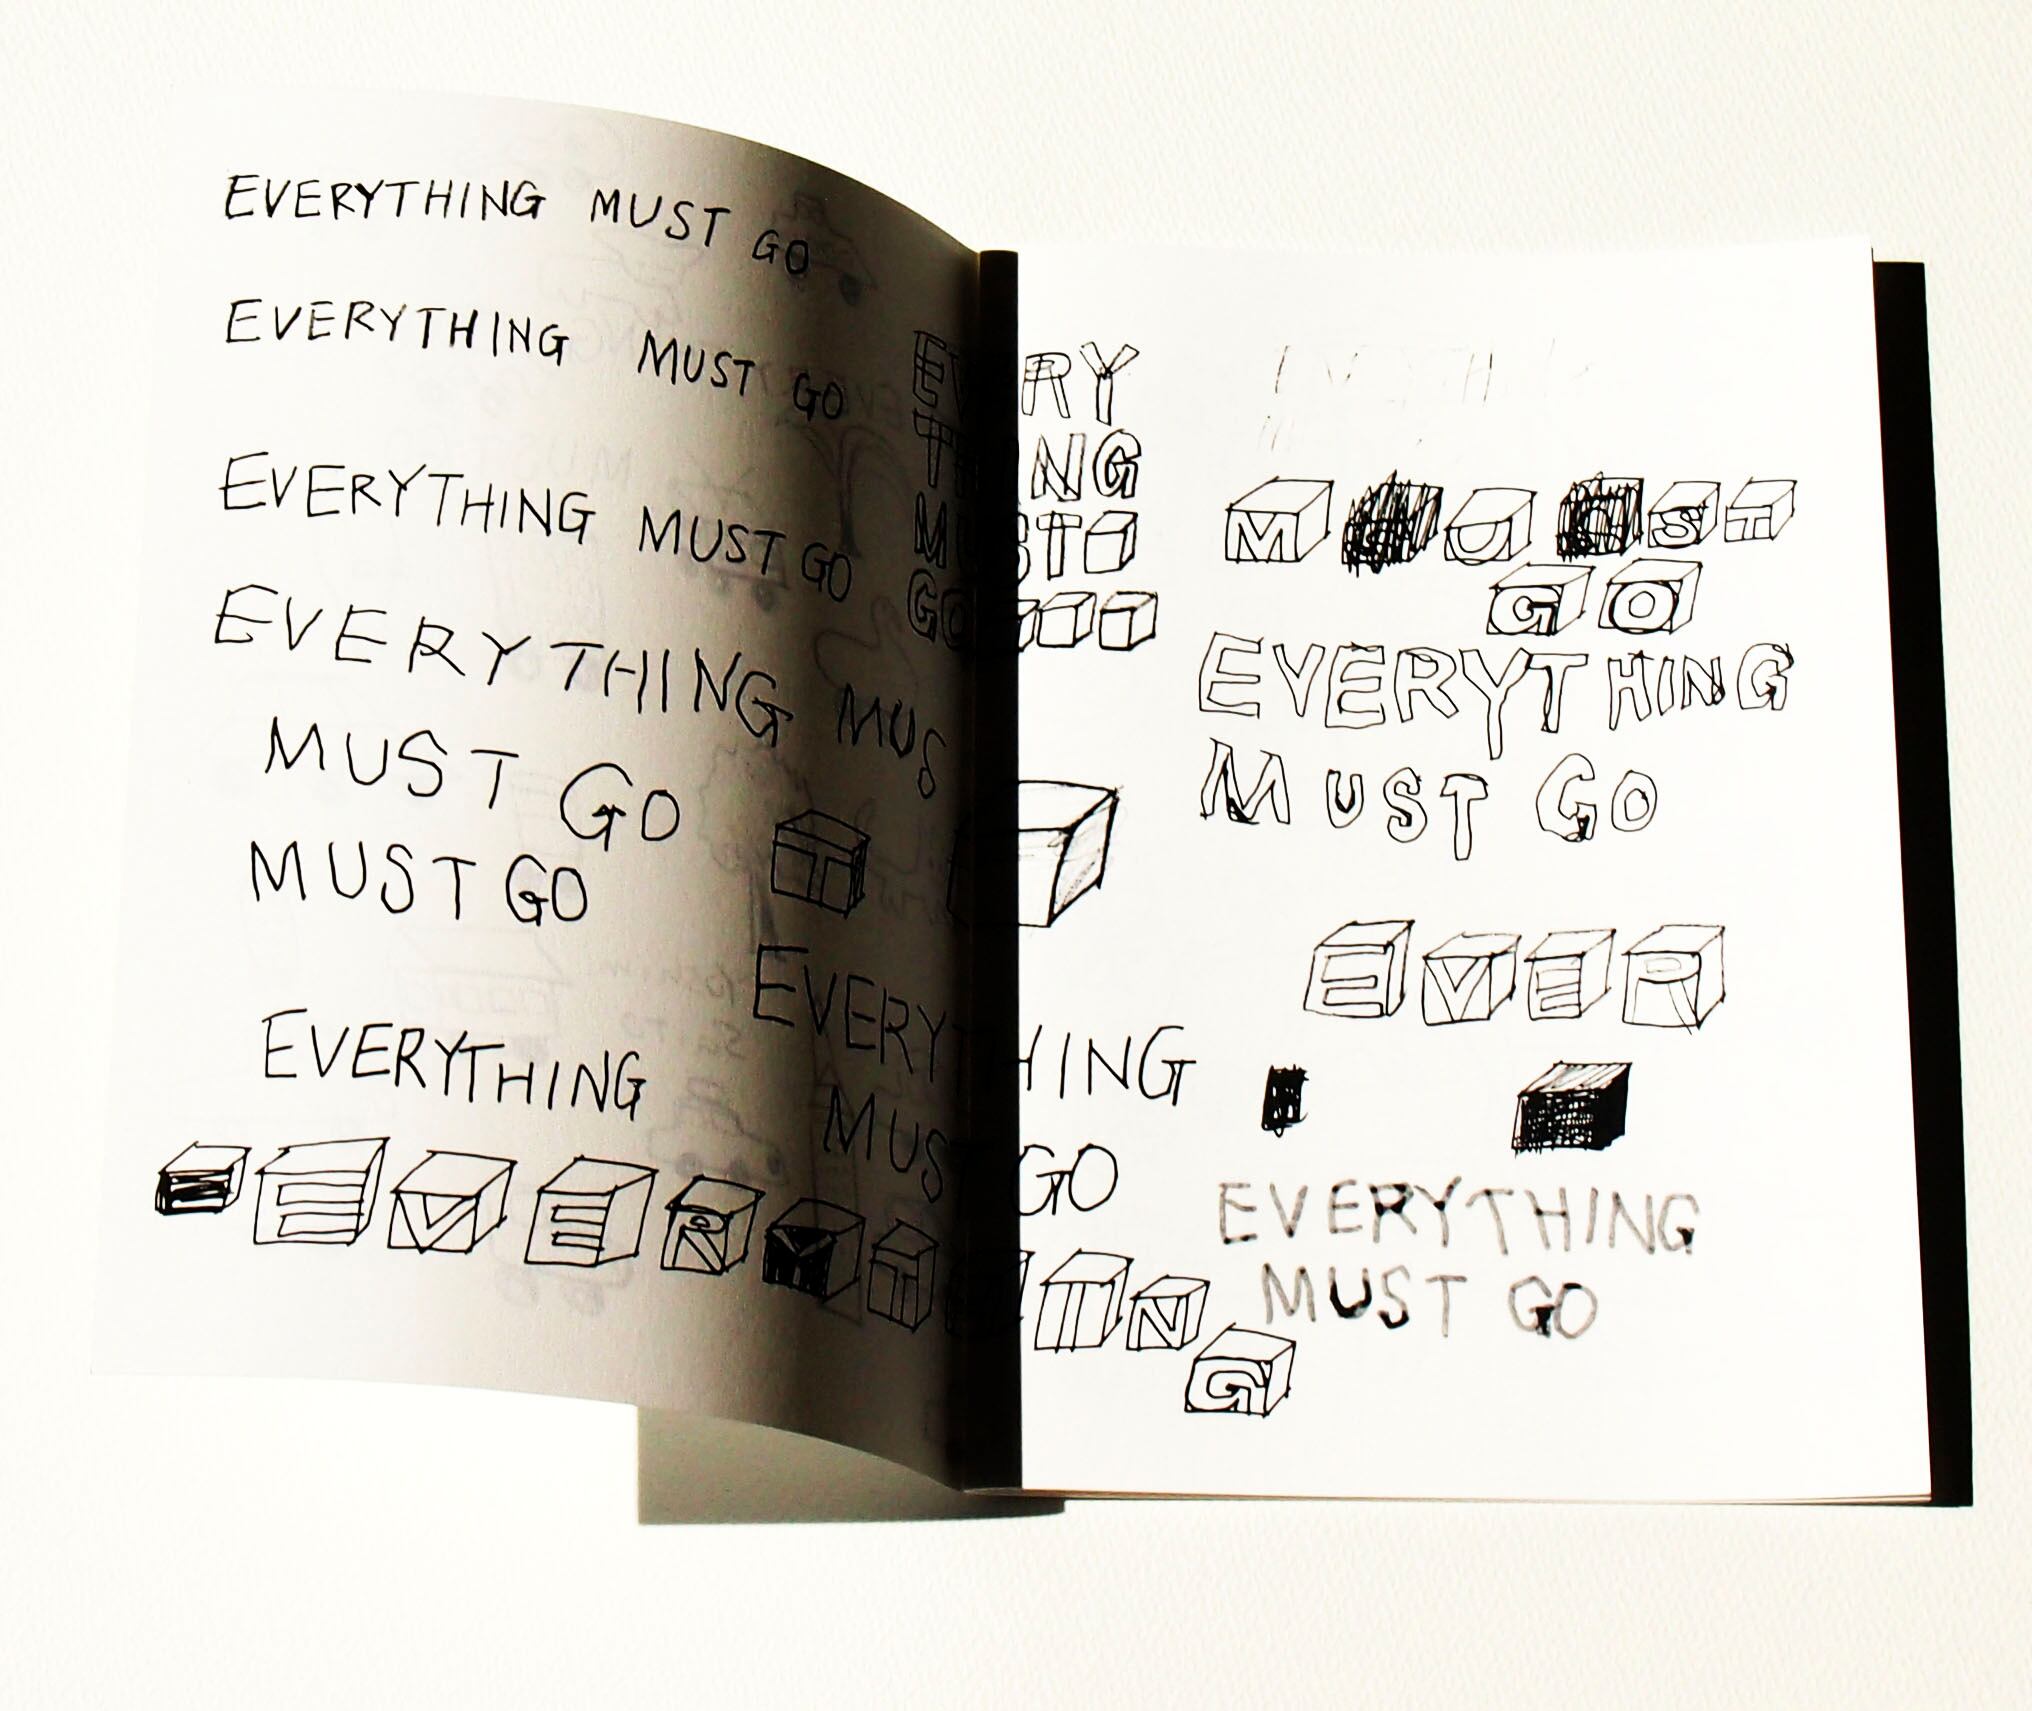 EVERYTHING MUST GO
EVERYTHING MUST GO
EVERYTHING MUST GO
EVERYTHING MUS
MUST GO
MUST GO
EVERYTHING
EVERYTHING
MUS GO
EVERYT
T
EVERY
THING
MUST
GO
ING
M U ST
GO
EVERYTHING
MUST GO
EVER
EVERYTHING
MUST GO